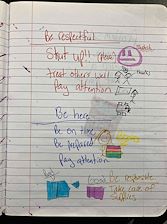 Be respectful
Shut up!! (please)
treat others well
Pay attention
Be here
Be on time
Be prepared
Pay attention
Good
Be responsible
Take care of
Supplies